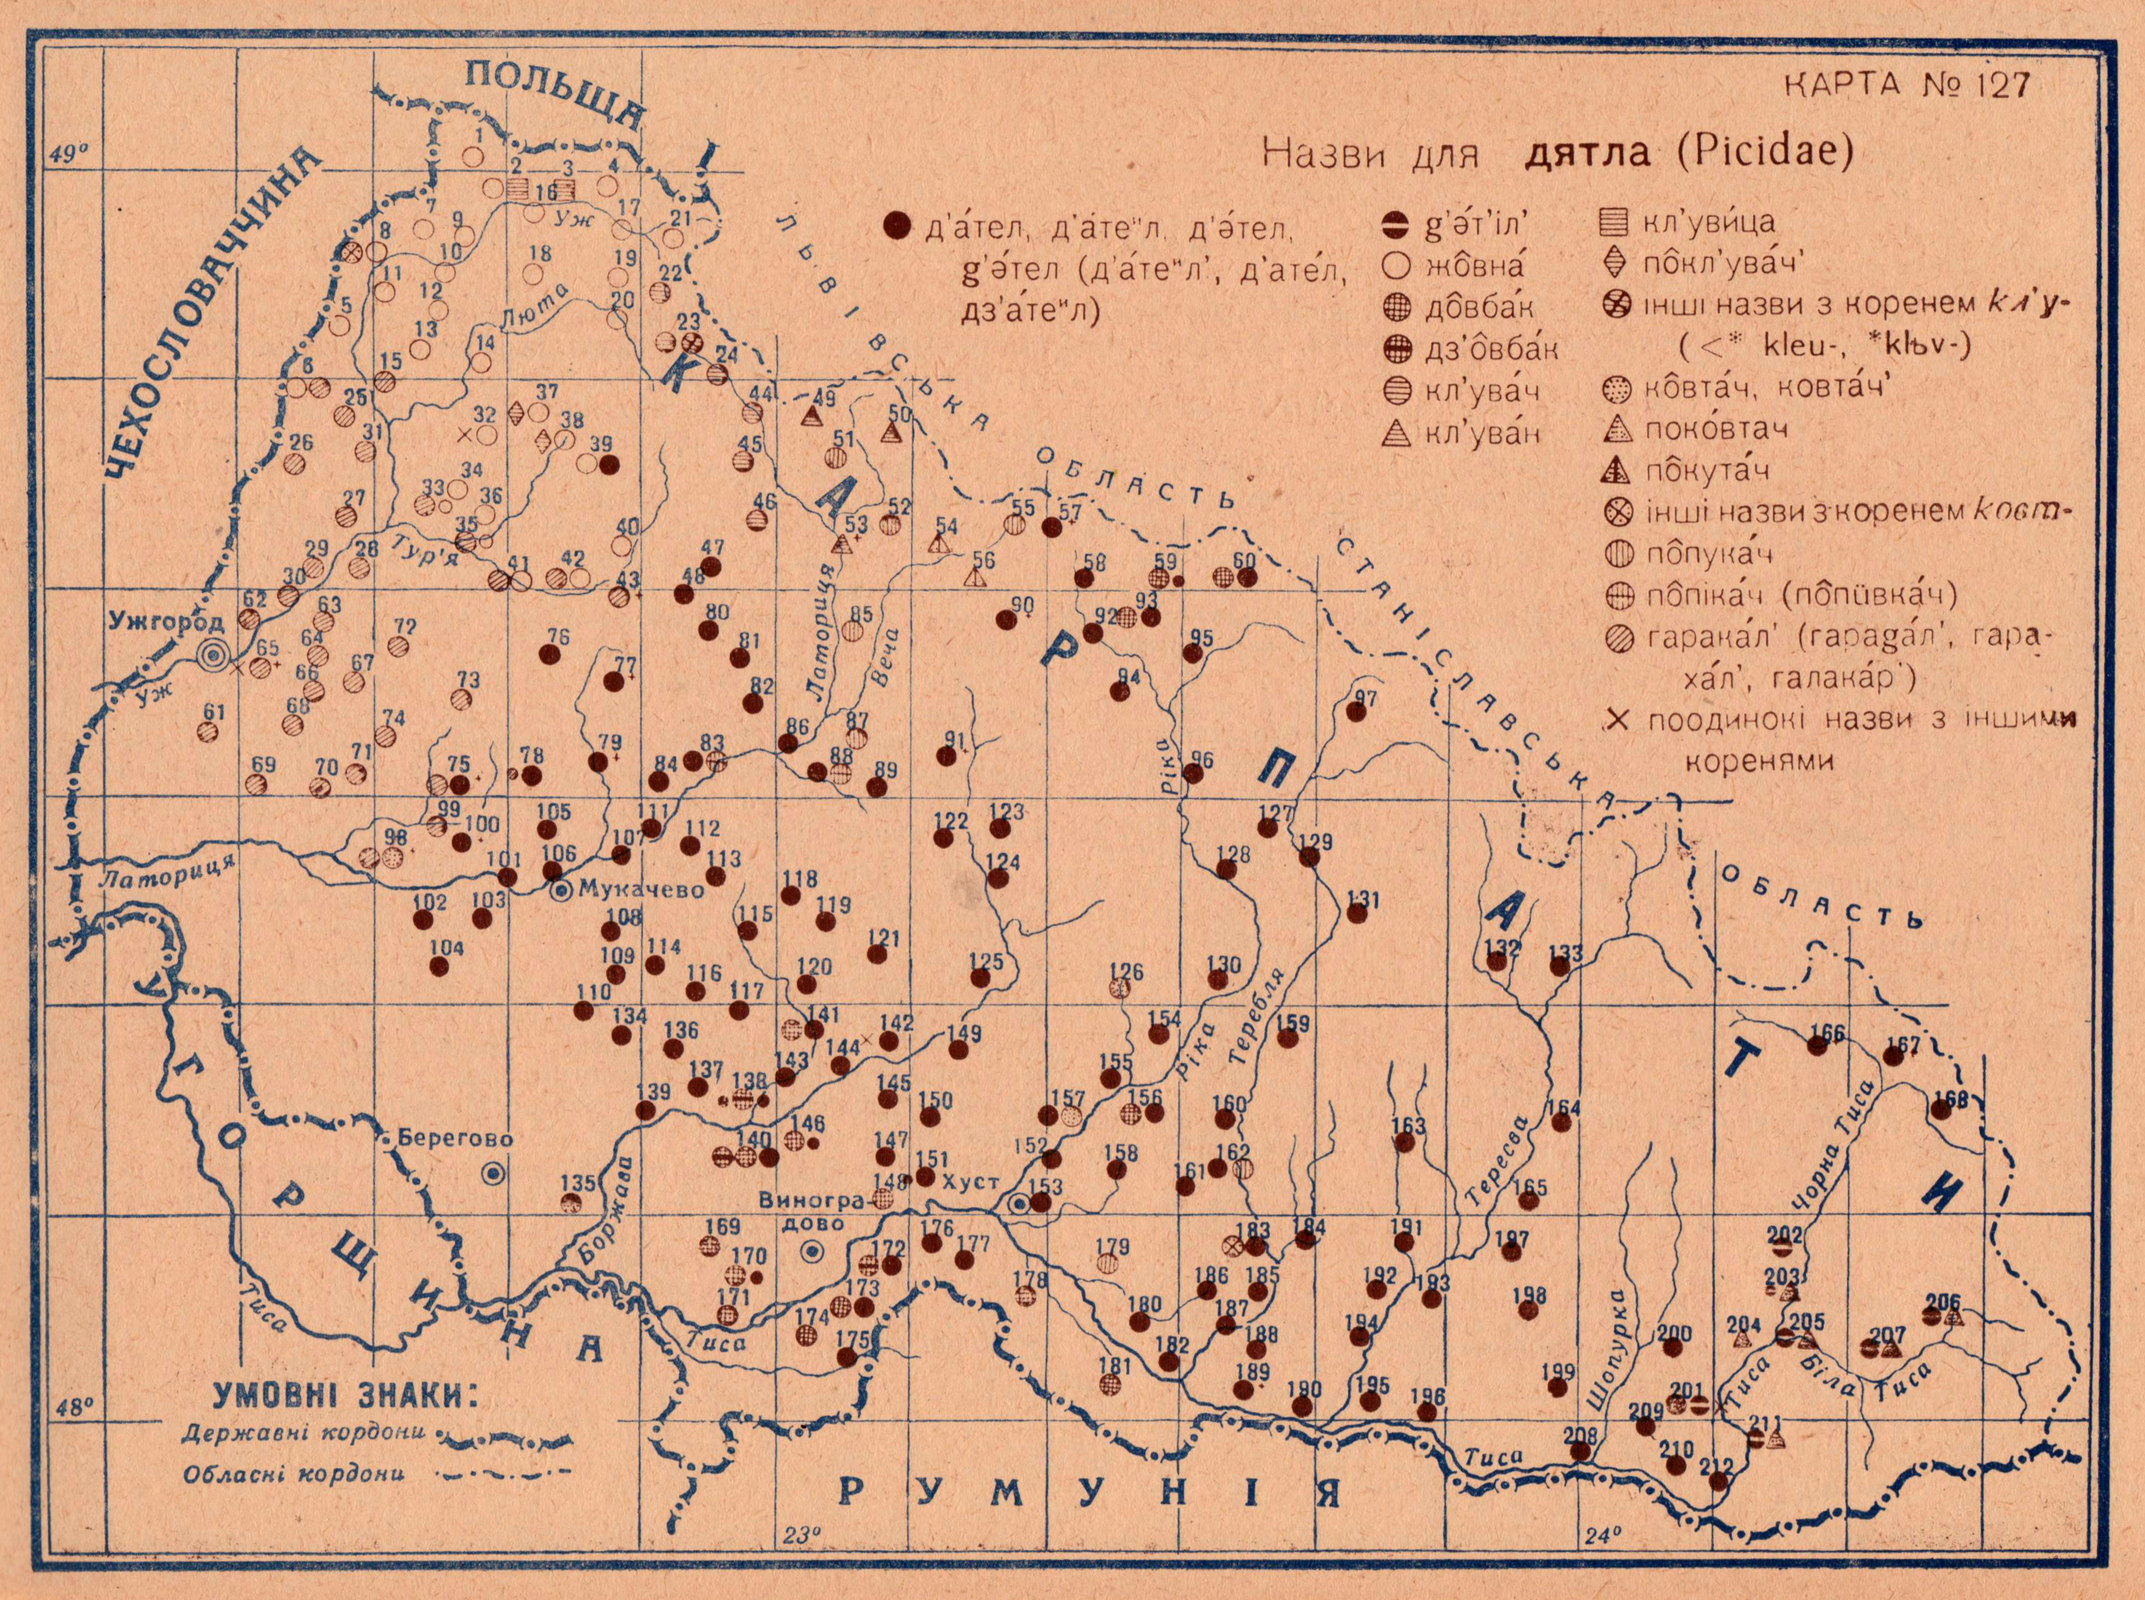 КАРТА № 127
Назви для дятла (Picidae)
д'áтел, д'áтеᴻл, д'э́тел,
g'э́тел (д'áтеᴻл', д'атéл,
дз'áтеᴻл)
g'э́т'іл'
жо̂внá
до̂вбáк
дз'о̂вбáк
кл'увáч
кл'увáк
кл'уви́ца
по̂кл'увáч'
інші назви з коренем кл'у-
(<* kleu-, *klъv-)
ко̂втáч, ковтáч'
покóвтач
по̂кутáч
інші назви з коренем ковт-
по̂пукáч
по̂пікáч (по̂пӱвкáч)
гаракáл' (гараgáл', гара-
хáл', галакáр')
поодинокі назви з іншими
коренями
ПОЛЬЩА
ЧЕХОСЛОВАЧЧИНА
ЛЬВІВСЬКА ОБЛАСТЬ
СТАНІСЛАВСЬКА ОБЛАСТЬ
КАРПАТИ
УГОРЩИНА
РУМУНІЯ
49°
48°
23°
24°
Уж
Люта
Тур'я
Ужгород
Уж
Латориця
Веча
Ріка
Латориця
Мукачево
Берегово
Боржава
Виногра-
дово
Хуст
Ріка
Теребля
Тересва
Чорна Тиса
Шопурка
Тиса
Біла Тиса
Тиса
Тиса
Тиса
УМОВНІ ЗНАКИ:
Державні кордони
Обласні кордони
1
2
3
4
5
6
7
8
9
10
11
12
13
14
15
16
17
18
19
20
21
22
23
24
25
26
27
28
29
30
31
32
33
34
35
36
37
38
39
40
41
42
43
44
45
46
47
48
49
50
51
52
53
54
55
56
57
58
59
60
61
62
63
64
65
66
67
68
69
70
71
72
73
74
75
76
77
78
79
80
81
82
83
84
85
86
87
88
89
90
91
92
93
94
95
96
97
98
99
100
101
102
103
104
105
106
107
108
109
110
111
112
113
114
115
116
117
118
119
120
121
122
123
124
125
126
127
128
129
130
131
132
133
134
135
136
137
138
139
140
141
142
143
144
145
146
147
148
149
150
151
152
153
154
155
156
157
158
159
160
161
162
163
164
165
166
167
168
169
170
171
172
173
174
175
176
177
178
179
180
181
182
183
184
185
186
187
188
189
190
191
192
193
194
195
196
197
198
199
200
201
202
203
204
205
206
207
208
209
210
211
212